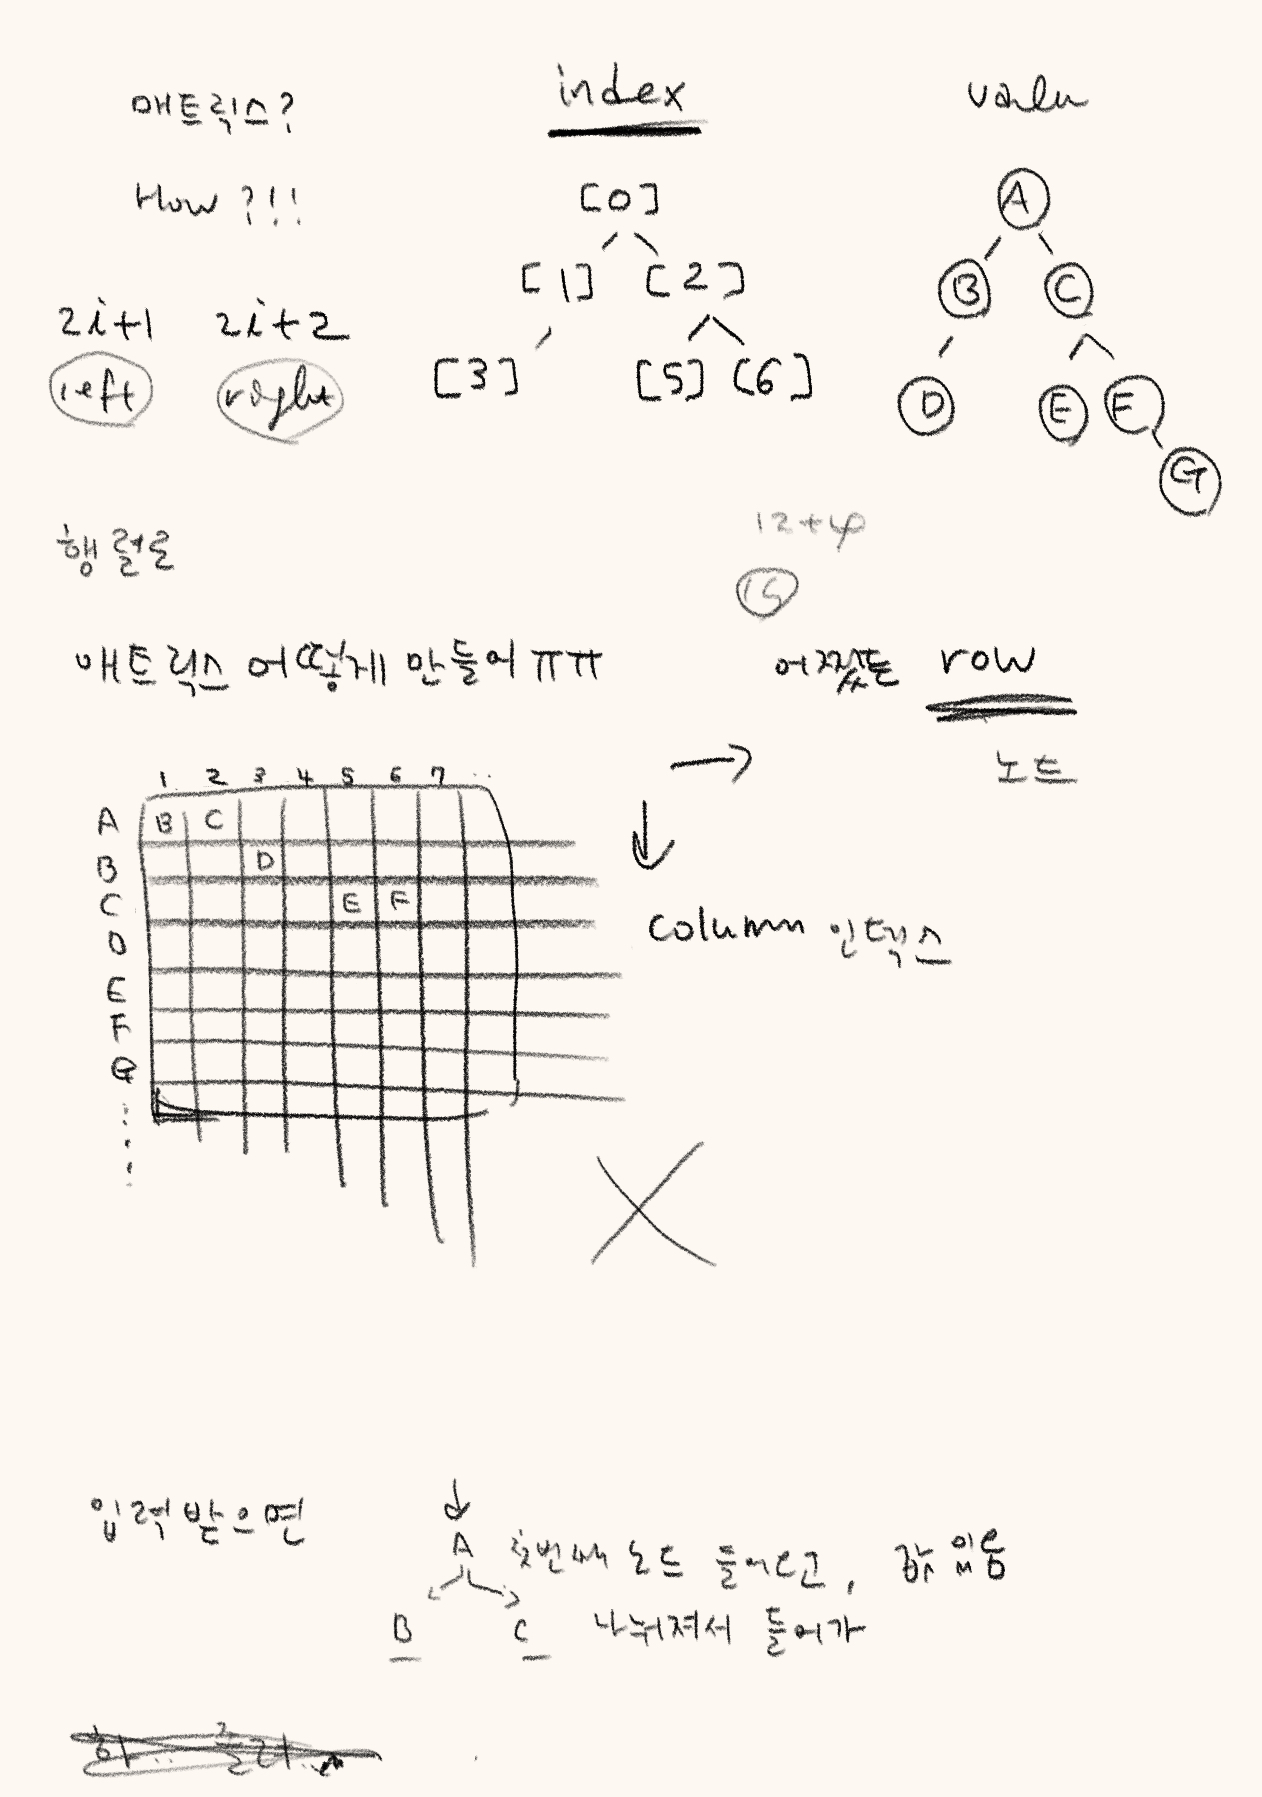 매트릭스?
index
valu
How ?!!
[0]
[1] [2]
[3] [5] [6]
A
B C
D E F
G
2i+1 2i+2
left right
행렬로
12+4
15
매트릭스 어떻게 만들어 ㅠㅠ
어쨌든 row
노드
1 2 3 4 5 6 7 ..
A B C
B D
C E F
D
E
F
G
column 인덱스
입력 받으면
A 첫번째 노드 들어오고, 값 있음
B C 나눠져서 들어가